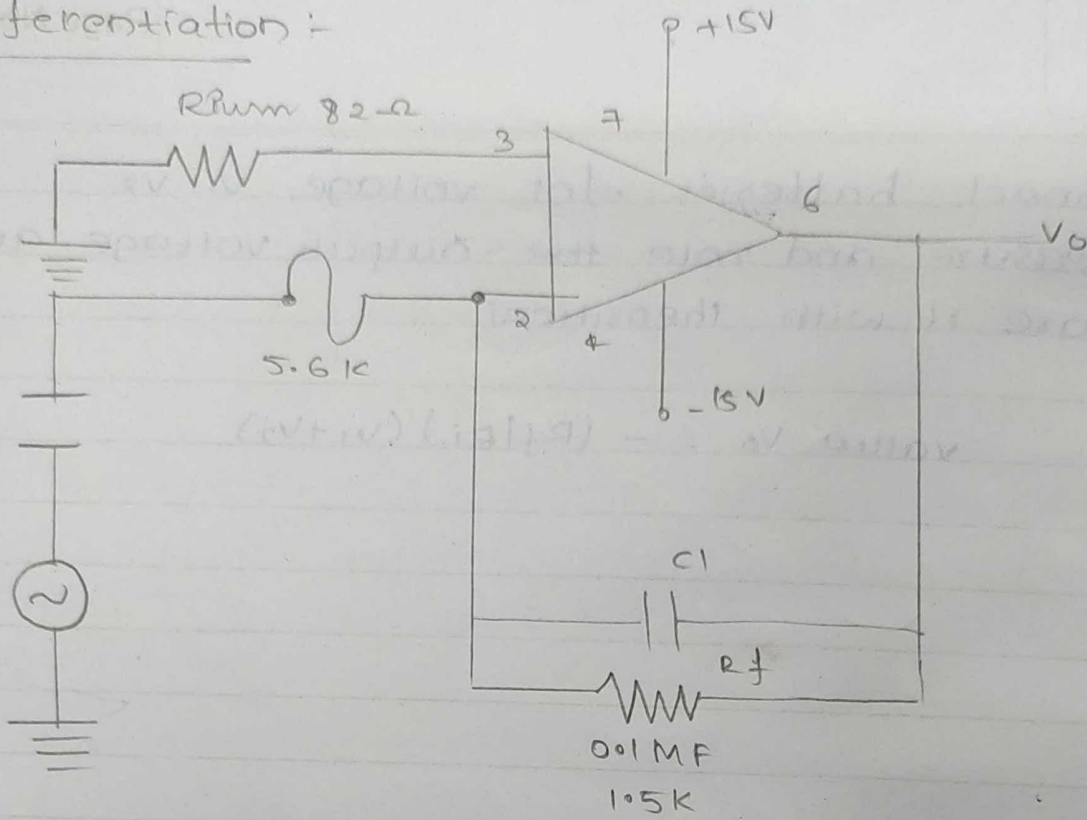 ferentiation :-
+15V
82-Ω
7
3
6
Vo
2
4
5.6 K
-15V
C1
Rf
0.1 MF
1.5K